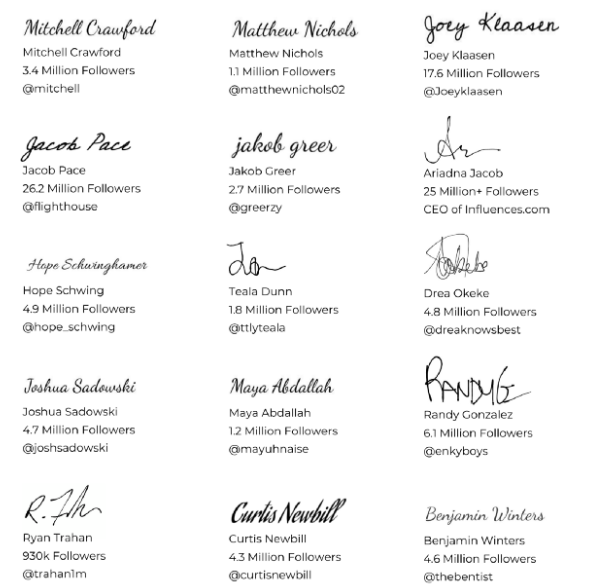 Mitchell Crawford
Mitchell Crawford
3.4 Million Followers
@mitchell
Matthew Nichols
Matthew Nichols
1.1 Million Followers
@matthewnichols02
Joey Klaasen
Joey Klaasen
17.6 Million Followers
@Joeyklaasen
Jacob Pace
Jacob Pace
26.2 Million Followers
@flighthouse
jakob greer
Jakob Greer
2.7 Million Followers
@greerzy
Ariadna Jacob
25 Million+ Followers
CEO of Influences.com
Hope Schwinghamer
Hope Schwing
4.9 Million Followers
@hope_schwing
Teala Dunn
1.8 Million Followers
@ttlyteala
Drea Okeke
4.8 Million Followers
@dreaknowsbest
Joshua Sadowski
Joshua Sadowski
4.7 Million Followers
@joshsadowski
Maya Abdallah
Maya Abdallah
1.2 Million Followers
@mayuhnaise
RANDYG
Randy Gonzalez
6.1 Million Followers
@enkyboys
Ryan Trahan
930k Followers
@trahan1m
Curtis Newbill
Curtis Newbill
4.3 Million Followers
@curtisnewbill
Benjamin Winters
Benjamin Winters
4.6 Million Followers
@thebentist